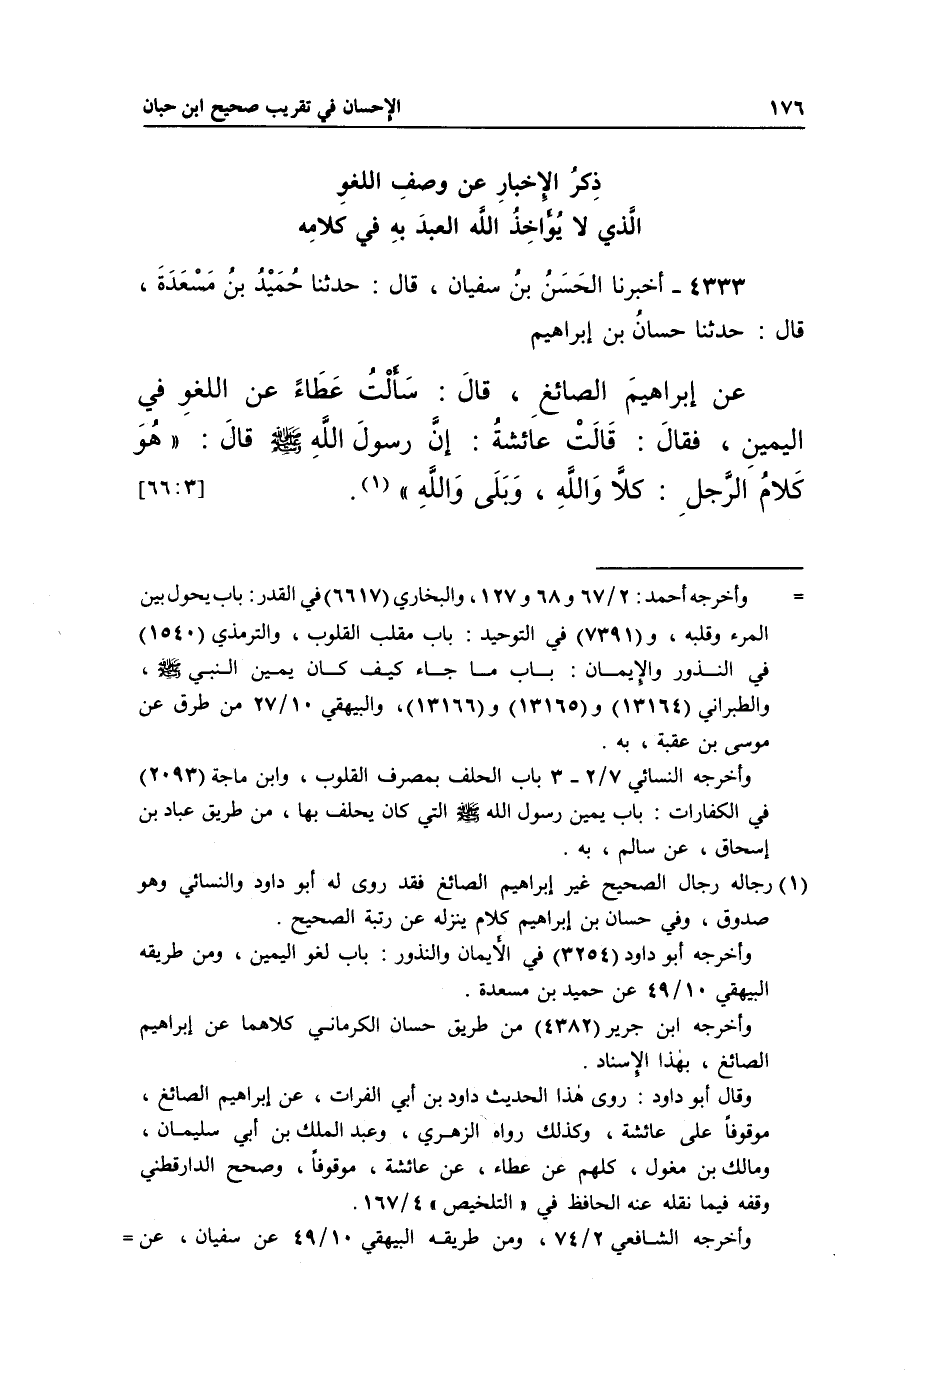 ١٧٦ الإحسان في تقريب صحيح ابن حبان
ذِكرُ الإِخبارِ عن وصفِ اللغوِ
الَّذي لا يُؤَاخِذُ اللَّه العبدَ بهِ في كلامِه
٤٣٣٣ ـ أخبرنا الحَسَنُ بنُ سفيان ، قال : حدثنا حُمَيْدُ بنُ مَسْعَدَةَ ،
قال : حدثنا حسانُ بن إبراهيم
عن إبراهيمَ الصائغِ ، قالَ : سَأَلْتُ عَطَاءً عن اللغوِ في
اليمينِ ، فقالَ : قَالَتْ عائشةُ : إنَّ رسولَ اللَّهِ ﷺ قالَ : « هُوَ
كَلامُ الرَّجلِ : كلَّا وَاللَّهِ ، وَبَلَى وَاللَّهِ » (١). [٣:٦٦]
= وأخرجه أحمد: ٦٧/٢ و ٦٨ و ١٢٧، والبخاري (٦٦١٧) في القدر: باب يحول بين
المرء وقلبه ، و (٧٣٩١) في التوحيد : باب مقلب القلوب ، والترمذي (١٥٤٠)
في النذور والإيمان : باب ما جاء كيف كان يمين النبي ﷺ ،
والطبراني (١٣١٦٤) و(١٣١٦٥) و(١٣١٦٦)، والبيهقي ٢٧/١٠ من طرق عن
موسى بن عقبة ، به .
وأخرجه النسائي ٢/٧ ـ ٣ باب الحلف بمصرف القلوب ، وابن ماجة (٢٠٩٣)
في الكفارات : باب يمين رسول الله ﷺ التي كان يحلف بها ، من طريق عباد بن
إسحاق ، عن سالم ، به .
(١) رجاله رجال الصحيح غير إبراهيم الصائغ فقد روى له أبو داود والنسائي وهو
صدوق ، وفي حسان بن إبراهيم كلام ينزله عن رتبة الصحيح .
وأخرجه أبو داود (٣٢٥٤) في الأيمان والنذور : باب لغو اليمين ، ومن طريقه
البيهقي ٤٩/١٠ عن حميد بن مسعدة .
وأخرجه ابن جرير (٤٣٨٢) من طريق حسان الكرماني كلاهما عن إبراهيم
الصائغ ، بهٰذا الإِسناد .
وقال أبو داود : روى هٰذا الحديث داود بن أبي الفرات ، عن إبراهيم الصائغ ،
موقوفاً على عائشة ، وكذلك رواه الزهري ، وعبد الملك بن أبي سليمان ،
ومالك بن مغول ، كلهم عن عطاء ، عن عائشة ، موقوفاً ، وصحح الدارقطني
وقفه فيما نقله عنه الحافظ في « التلخيص » ١٦٧/٤ .
وأخرجه الشافعي ٧٤/٢ ، ومن طريقه البيهقي ٤٩/١٠ عن سفيان ، عن =